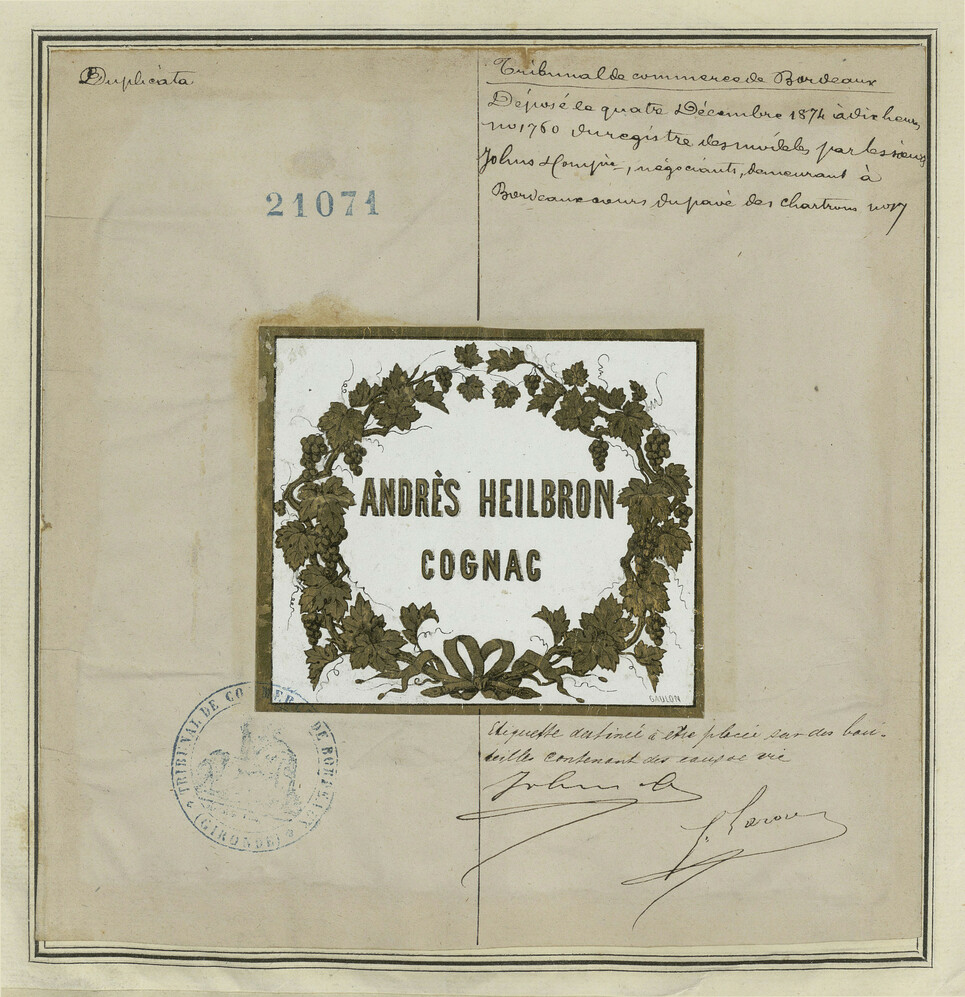 Duplicata
21071
Tribunal de commerce de Bordeaux
Déposé le quatre Décembre 1874 à dix heures
no 1760 du registre des modèles, par les sieurs
Johns & Compie, négociants, demeurant à
Bordeaux cours du pavé des chartrons no 17
ANDRÈS HEILBRON
COGNAC
GAULON
TRIBUNAL DE COMMERCE DE BORDEAUX
(GIRONDE)
Etiquette destinée à etre placée sur des bou-
teilles contenant des eaux de vie
John &